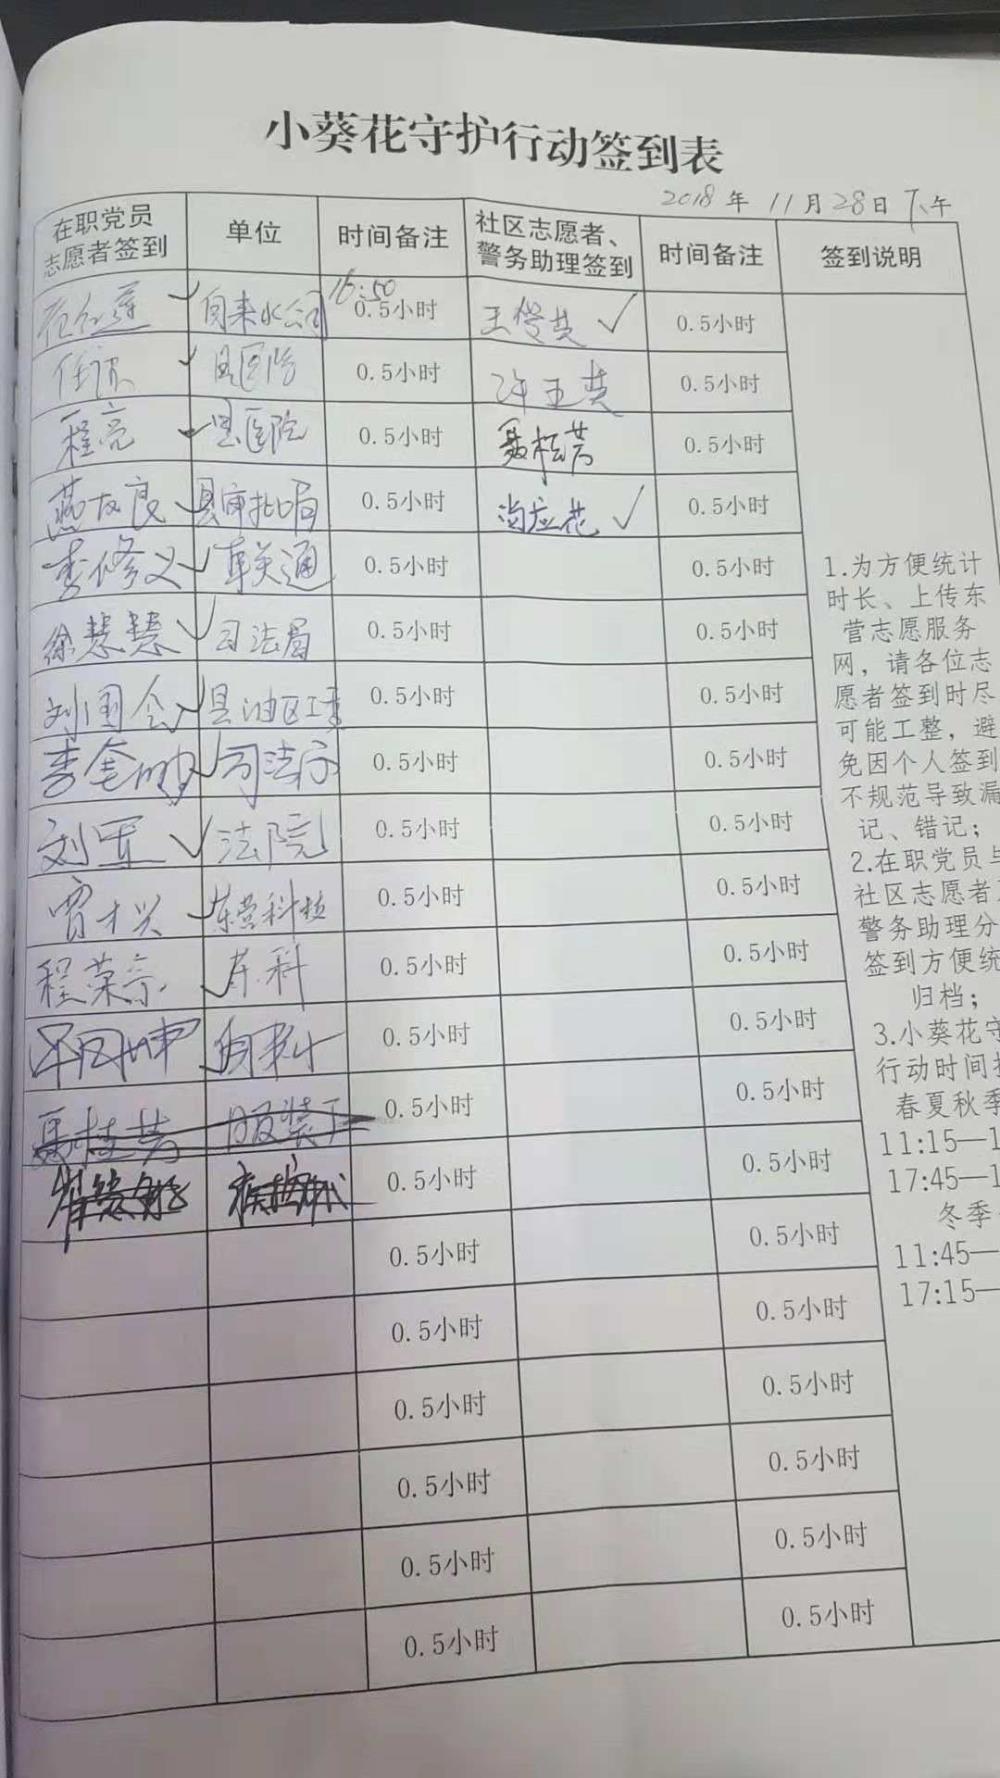 小葵花守护行动签到表
2018年11月28日下午
在职党员志愿者签到 单位 时间备注 社区志愿者、警务助理签到 时间备注 签到说明
自来水公司 16:50 0.5小时 0.5小时
县医院 0.5小时 许玉芝 0.5小时
程亮 县医院 0.5小时 聂桂芳 0.5小时
燕友良 县审批局 0.5小时 0.5小时
李修义 联通 0.5小时 0.5小时
徐慧慧 司法局 0.5小时 0.5小时
刘国会 县油区 0.5小时 0.5小时
李奎 司法 0.5小时 0.5小时
刘军 法院 0.5小时 0.5小时
贾才兴 东营科技 0.5小时 0.5小时
程荣宗 东科 0.5小时 0.5小时
自来水 0.5小时 0.5小时
聂桂芳 服装厂 0.5小时 0.5小时
0.5小时 0.5小时
0.5小时 0.5小时
0.5小时 0.5小时
0.5小时 0.5小时
0.5小时 0.5小时
0.5小时 0.5小时
0.5小时 0.5小时
1.为方便统计
时长、上传东
营志愿服务
网，请各位志
愿者签到时尽
可能工整，避
免因个人签到
不规范导致漏
记、错记；
2.在职党员与
社区志愿者
警务助理分
签到方便统
归档；
3.小葵花守
行动时间
春夏秋季
11:15—1
17:45—1
冬季
11:45—
17:15—